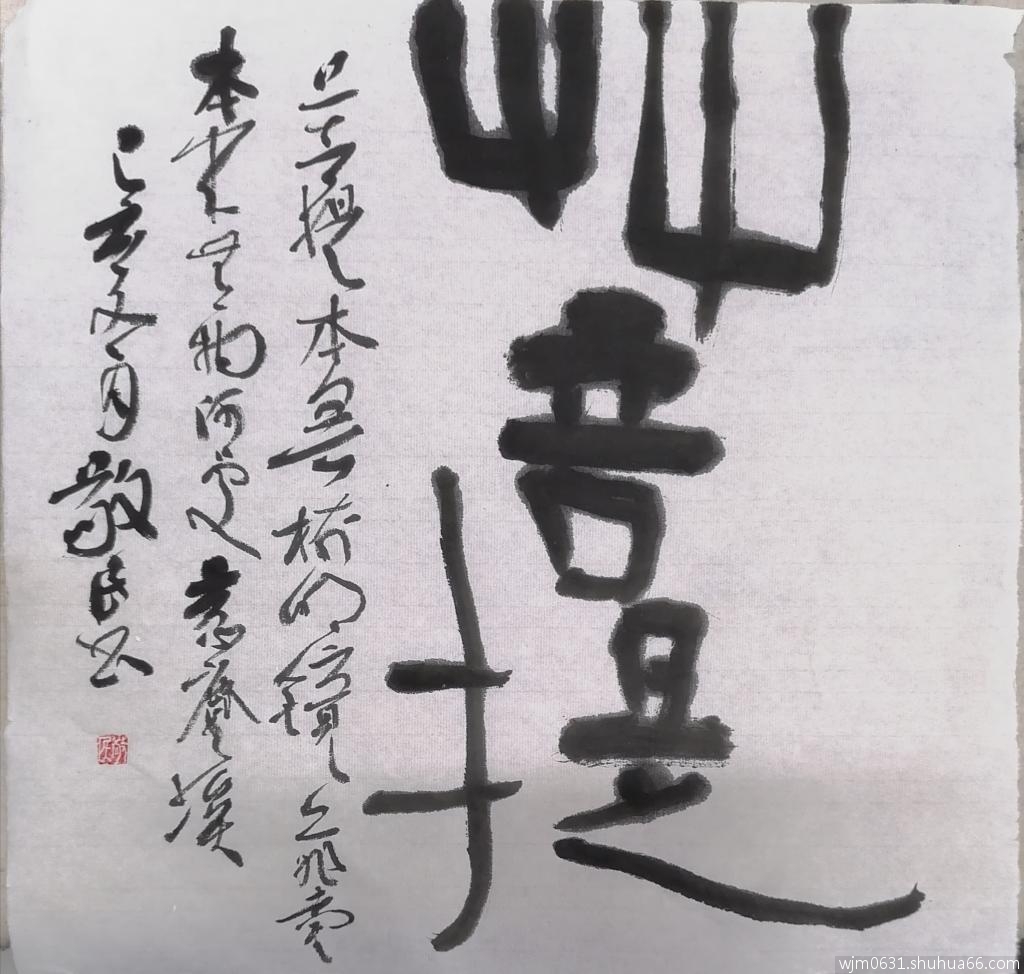 菩提
菩提本無樹明鏡亦非臺
本来無一物何處惹塵埃
己亥夏月敬民书
wjm0631.shuhua66.com